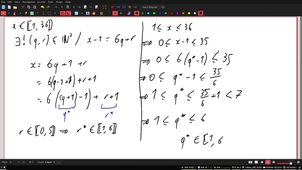 x ∈ ⟦1, 36⟧
∃! (q, r) ∈ ℕ² / x-1 = 6q+r
x = 6q + 1 + r
= 6(q-1+1) + r+1
= 6((q+1)-1) + r+1
q* r*
r ∈ ⟦0, 5⟧ ⟹ r* ∈ ⟦1, 6⟧
1 ≤ x ≤ 36
⟹ 0 ≤ x-1 ≤ 35
⟹ 0 ≤ 6(q*-1) ≤ 35
⟹ 0 ≤ q*-1 ≤ 35/6
⟹ 1 ≤ q* ≤ 35/6 + 1 < 7
⟹ 1 ≤ q* ≤ 6
q* ∈ ⟦1, 6